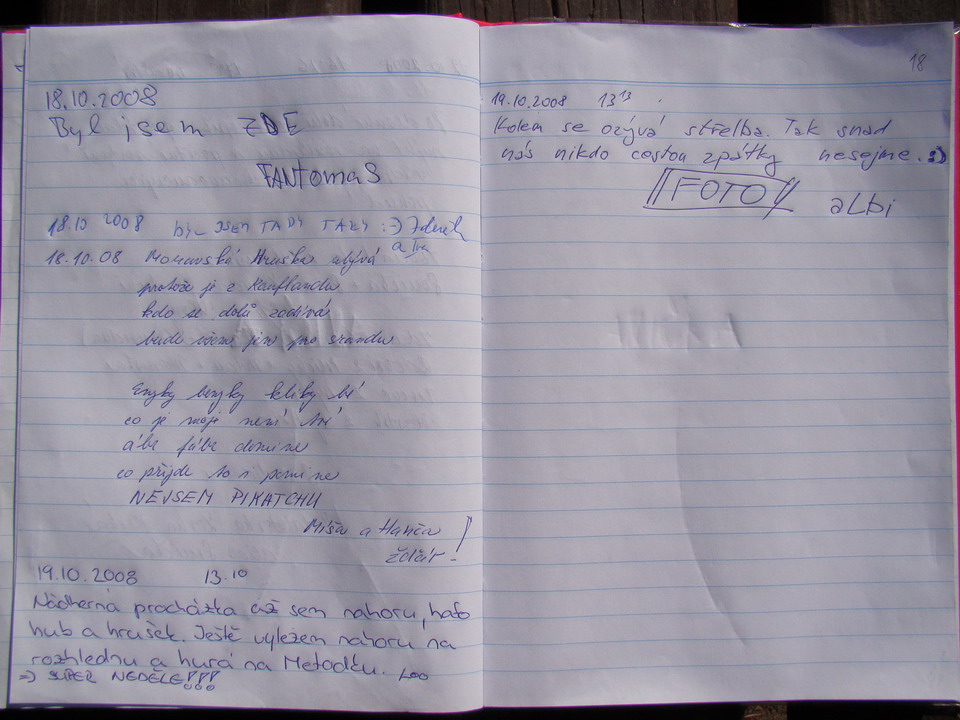 18.10.2008
Byl jsem ZDE
FANTOMAS
18.10 2008 BYL JSEM TADY TAKY :-) Zdeněk
a Iva
18.10.08 Moravská Hruška ubývá
protože je z Kauflandu
kdo se dolů zadívá
bude všem jen pro srandu
Enyky benyky kliky bé
co je moje není tvé
ábe fábe domine
co přijde to i pomine
NEJSEM PIKATCHU
Míša a Hanča
Ždár!
19.10.2008 13.10
Nádherná procházka až sem nahoru, hafo
hub a hrušek. Ještě vylezem nahoru na
rozhlednu a hurá na Metodku.
=> SUPER NEDĚLE!!!
18
19.10.2008 13 13
Kolem se ozývá střelba. Tak snad
nás nikdo cestou zpátky nesejme. :)
FOTO albi